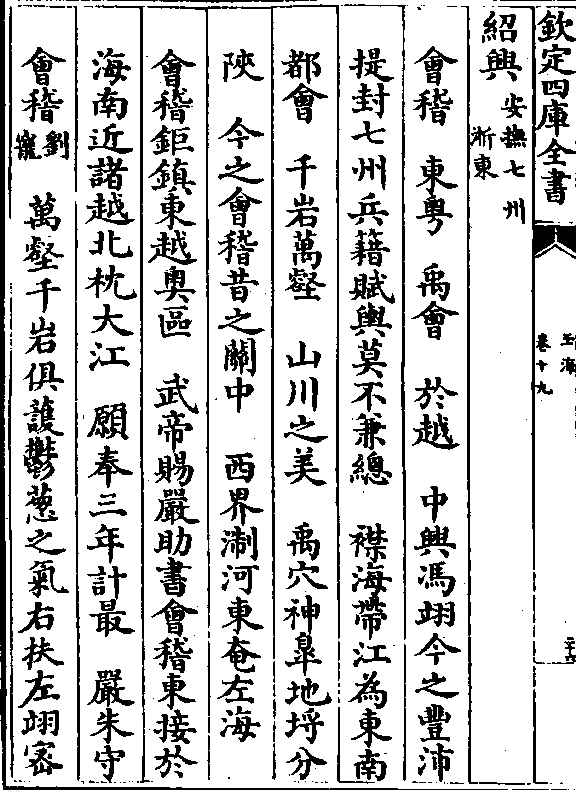 欽定四庫全書
玉海
卷十九
紹興 安撫七州
浙東
會稽 東粤 禹會 於越 中興馮翊今之豐沛
提封七州兵籍賦輿莫不兼總 襟海帶江為東南
都會 千岩萬壑 山川之美 禹穴神臯地埒分
陜 今之會稽昔之關中 西界淛河東奄左海
會稽鉅鎮東越奥區 武帝賜嚴助書會稽東接於
海南近諸越北枕大江 願奉三年計最 嚴朱守
會稽 劉
寵 萬壑千岩俱護鬱葱之氣右扶左翊宻